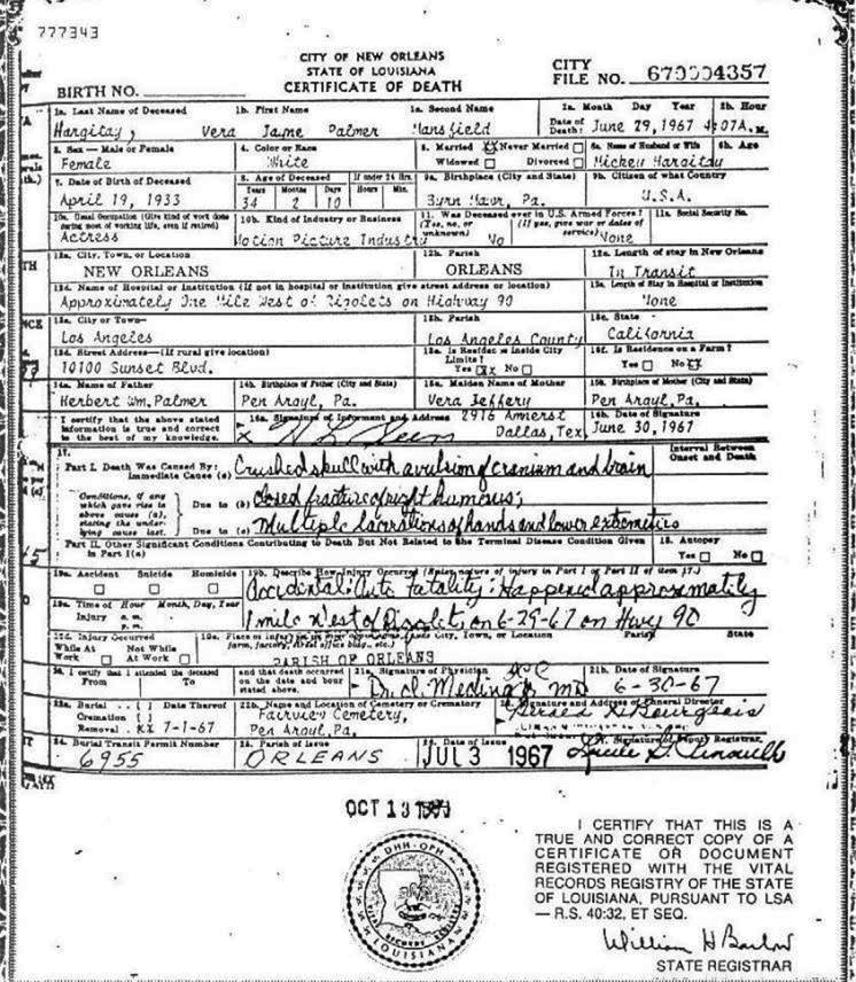 777343
CITY OF NEW ORLEANS
STATE OF LOUISIANA
CERTIFICATE OF DEATH
BIRTH NO.
CITY
FILE NO. 670004357
1a. Last Name of Deceased 1b. First Name 1c. Second Name 2a. Month Day Year 2b. Hour
Hargitay, Vera Jayne Palmer Mansfield Date of Death: June 29, 1967 4:07A.M.
3. Sex — Male or Female 4. Color or Race 5. Married Never Married 6a. Name of Husband or Wife 6b. Age
Female White Widowed Divorced Mickey Hargitay
7. Date of Birth of Deceased 8. Age of Deceased If under 24 Hrs. 9a. Birthplace (City and State) 9b. Citizen of what Country
Years Months Days Hours Min.
April 19, 1933 34 2 10 Byrn Mawr, Pa. U.S.A.
10a. Usual Occupation (Give kind of work done during most of working life, even if retired) 10b. Kind of Industry or Business 11. Was Deceased ever in U.S. Armed Forces? 11a. Social Security No.
(Yes, no, or unknown) (If yes, give war or dates of service)
Actress Motion Picture Industry No None
12a. City, Town, or Location 12b. Parish 12c. Length of stay in New Orleans
NEW ORLEANS ORLEANS In Transit
12d. Name of Hospital or Institution (If not in hospital or institution give street address or location) Length of Stay in Hospital or Institution
Approximately One Mile West of Rigolets on Highway 90 None
13a. City or Town— 13b. Parish 13c. State
Los Angeles Los Angeles County California
13d. Street Address—(If rural give location) 13e. Is Residence Inside City Limits? 13f. Is Residence on a Farm?
10100 Sunset Blvd. Yes No Yes No
14a. Name of Father 14b. Birthplace of Father (City and State) 15a. Maiden Name of Mother 15b. Birthplace of Mother (City and State)
Herbert Wm. Palmer Pen Argyl, Pa. Vera Jeffery Pen Argyl, Pa.
I certify that the above stated information is true and correct to the best of my knowledge. 16a. Signature of Informant and Address 2916 Amherst 16b. Date of Signature
Dallas, Tex. June 30, 1967
17. Interval Between Onset and Death
Part I. Death Was Caused By: Immediate Cause (a) Crushed skull with avulsion of cranium and brain
Conditions, if any which gave rise to above cause (a), stating the underlying cause last. Due to (b) closed fracture of right humerus;
Due to (c) Multiple lacerations of hands and lower extremities
Part II. Other Significant Conditions Contributing to Death But Not Related to the Terminal Disease Condition Given in Part I(a) 18. Autopsy
Yes No
19a. Accident Suicide Homicide 19b. Describe How Injury Occurred (Enter nature of injury in Part I or Part II of item 17.)
Accidental: Auto Fatality: Happened approximately
19c. Time of Injury Hour a.m. p.m. Month, Day, Year
1 mile West of Rigolets on 6-29-67 on Hwy 90
19d. Injury Occurred 19e. Place of Injury City, Town, or Location Parish State
While At Work Not While At Work farm, factory, street office bldg., etc.)
PARISH OF ORLEANS
20. I certify that I attended the deceased From To and that death occurred on the date and hour stated above. 21a. Signature of Physician 21b. Date of Signature
MD 6-30-67
22a. Burial Date Thereof 22b. Name and Location of Cemetery or Crematory Signature and Address of Funeral Director
Cremation
Removal XX 7-1-67 Fairview Cemetery, Pen Argyl, Pa.
24. Burial Transit Permit Number 25. Parish of Issue 26. Date of Issue 27. Signature of Deputy Registrar
6955 ORLEANS JUL 3 1967
OCT 13
DHH-OPH
VITAL RECORDS REGISTRY
LOUISIANA
I CERTIFY THAT THIS IS A
TRUE AND CORRECT COPY OF A
CERTIFICATE OR DOCUMENT
REGISTERED WITH THE VITAL
RECORDS REGISTRY OF THE STATE
OF LOUISIANA, PURSUANT TO LSA
— R.S. 40:32, ET SEQ.
William H Barlow
STATE REGISTRAR